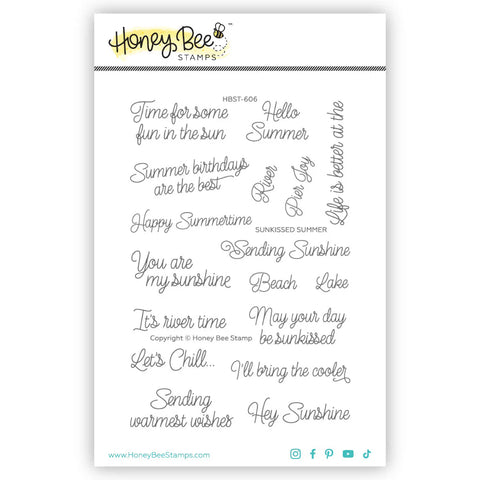 Honey Bee
STAMPS
™
HBST-606
Time for some
fun in the sun
Hello
Summer
Life is better at the
Summer birthdays
are the best
River
Pier
Joy
Happy Summertime
SUNKISSED SUMMER
Sending Sunshine
You are
my sunshine
Beach
Lake
It's river time
May your day
be sunkissed
Copyright © Honey Bee Stamp
Let's Chill...
I'll bring the cooler
Sending
warmest wishes
Hey Sunshine
www.HoneyBeeStamps.com